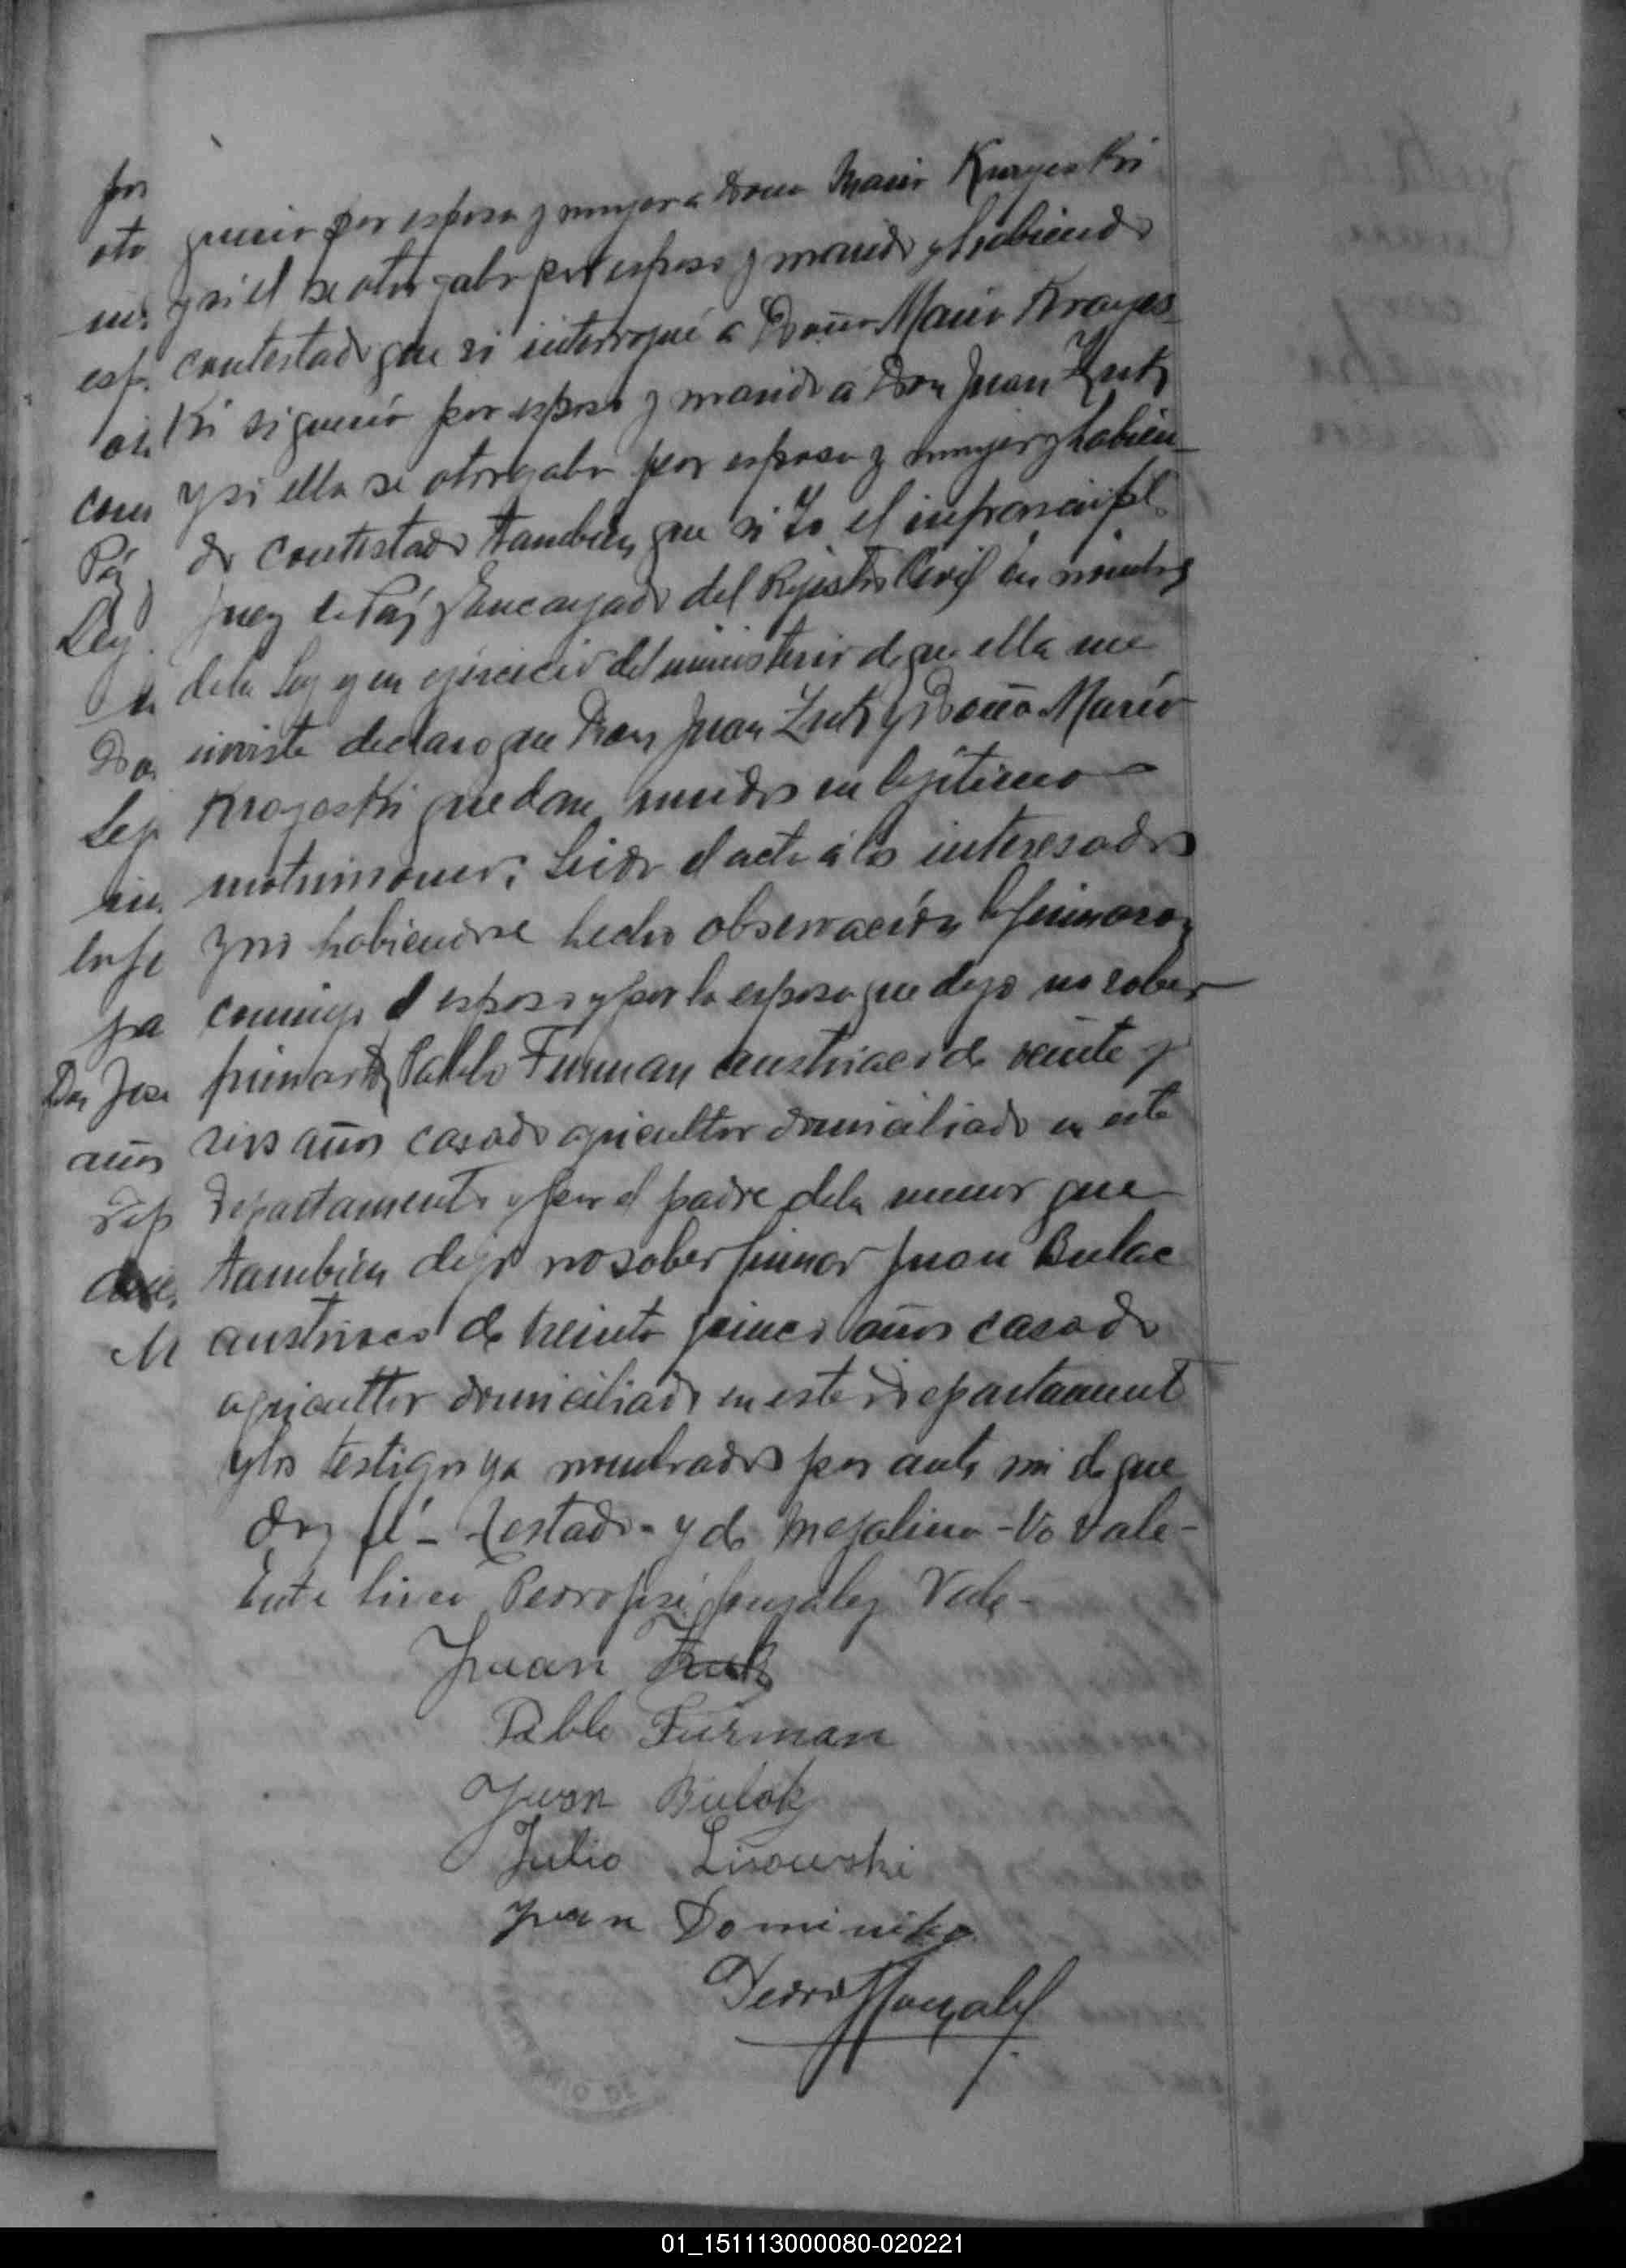 queria por esposa y mujer a Doña Maria Krayeski
y si él se otorgaba por esposo y marido y habiendo
contestado que si interrogué a Doña Maria Krayes-
ki si quería por esposo y marido a Don Juan Zuk
y si ella se otorgaba por esposa y mujer y habien-
do contestado tambien que si Yo el infrascripto
Juez de Paz y Encargado del Rejistro Civil en nombre
de la Ley y en ejercicio del ministerio de que ella me
inviste declaro que Don Juan Zuk y Doña María
Krayeski quedan unidos en lejitimo
matrimonio; Leido el acta á los interesados
y no habiendose hecho observación la firmaron
conmigo el esposo y por la esposa que dijo no saber
firmar Pablo Furman austriaco de veinte y
seis años casado agricultor domiciliado en este
Departamento y por el padre de la menor que
tambien dijo no saber firmar Juan Bulac
austriaco de treinta y cinco años casado
agricultor domiciliado en este departament
y los testigos ya nombrados por ante mi de que
doy fé - Testado - y de - No Vale -
Entre linea Pedro José Gonzalez Vale -
Juan Zuk
Pablo Furman
Juan Bulak
Julio Lisowski
Juan Dominiko
Pedro J Gonzalez
por
oto
esp
com
Paz
Ley
Lej
Don Jose
años
dep
M
01_151113000080-020221